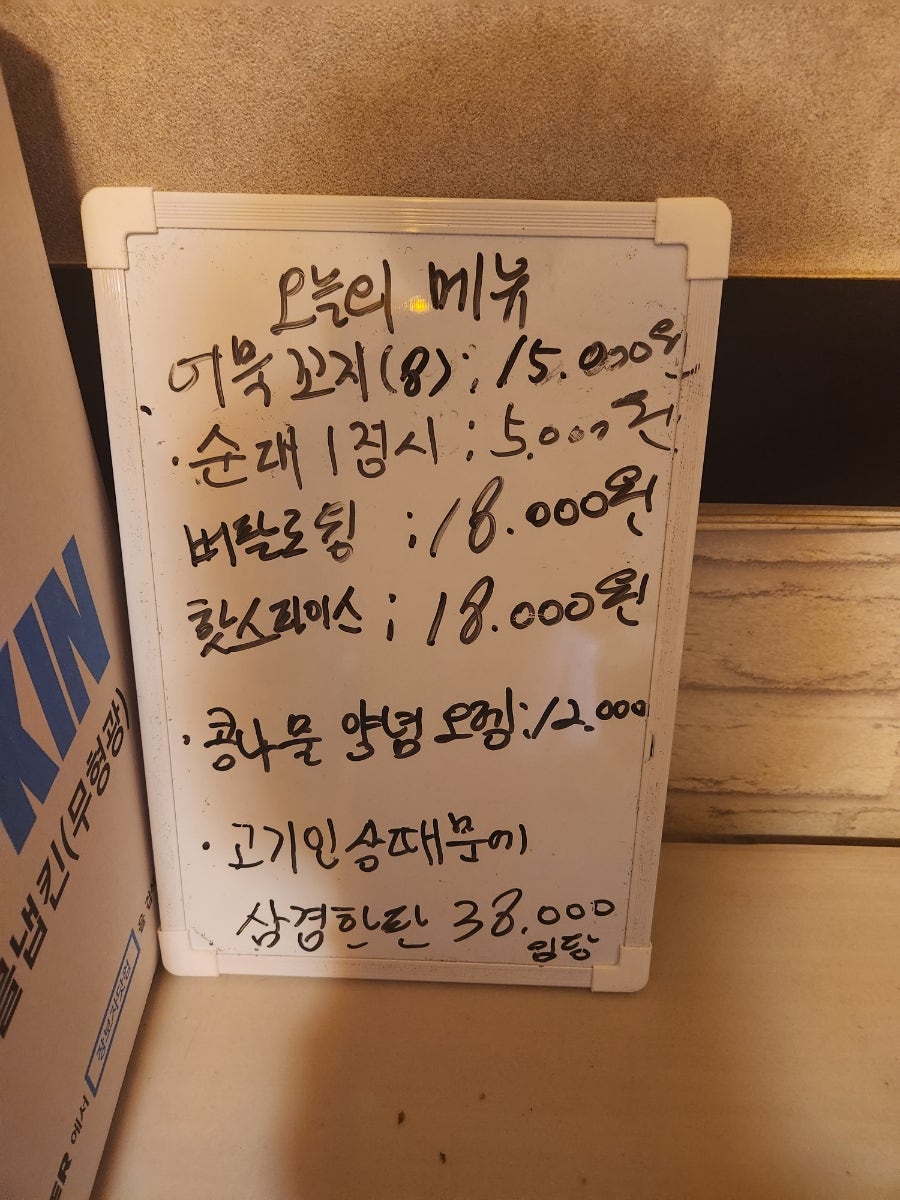 오늘의 메뉴
어묵꼬지(8): 15.000원
·순대 1접시: 5.000원
버팔로윙 : 18.000원
핫스파이스 ; 18.000원
·콩나물 양념 오뎅: 12.000
·고기인상때문에
삼겹한판 38.000
입당
KIN
냅킨(무형광)
에서